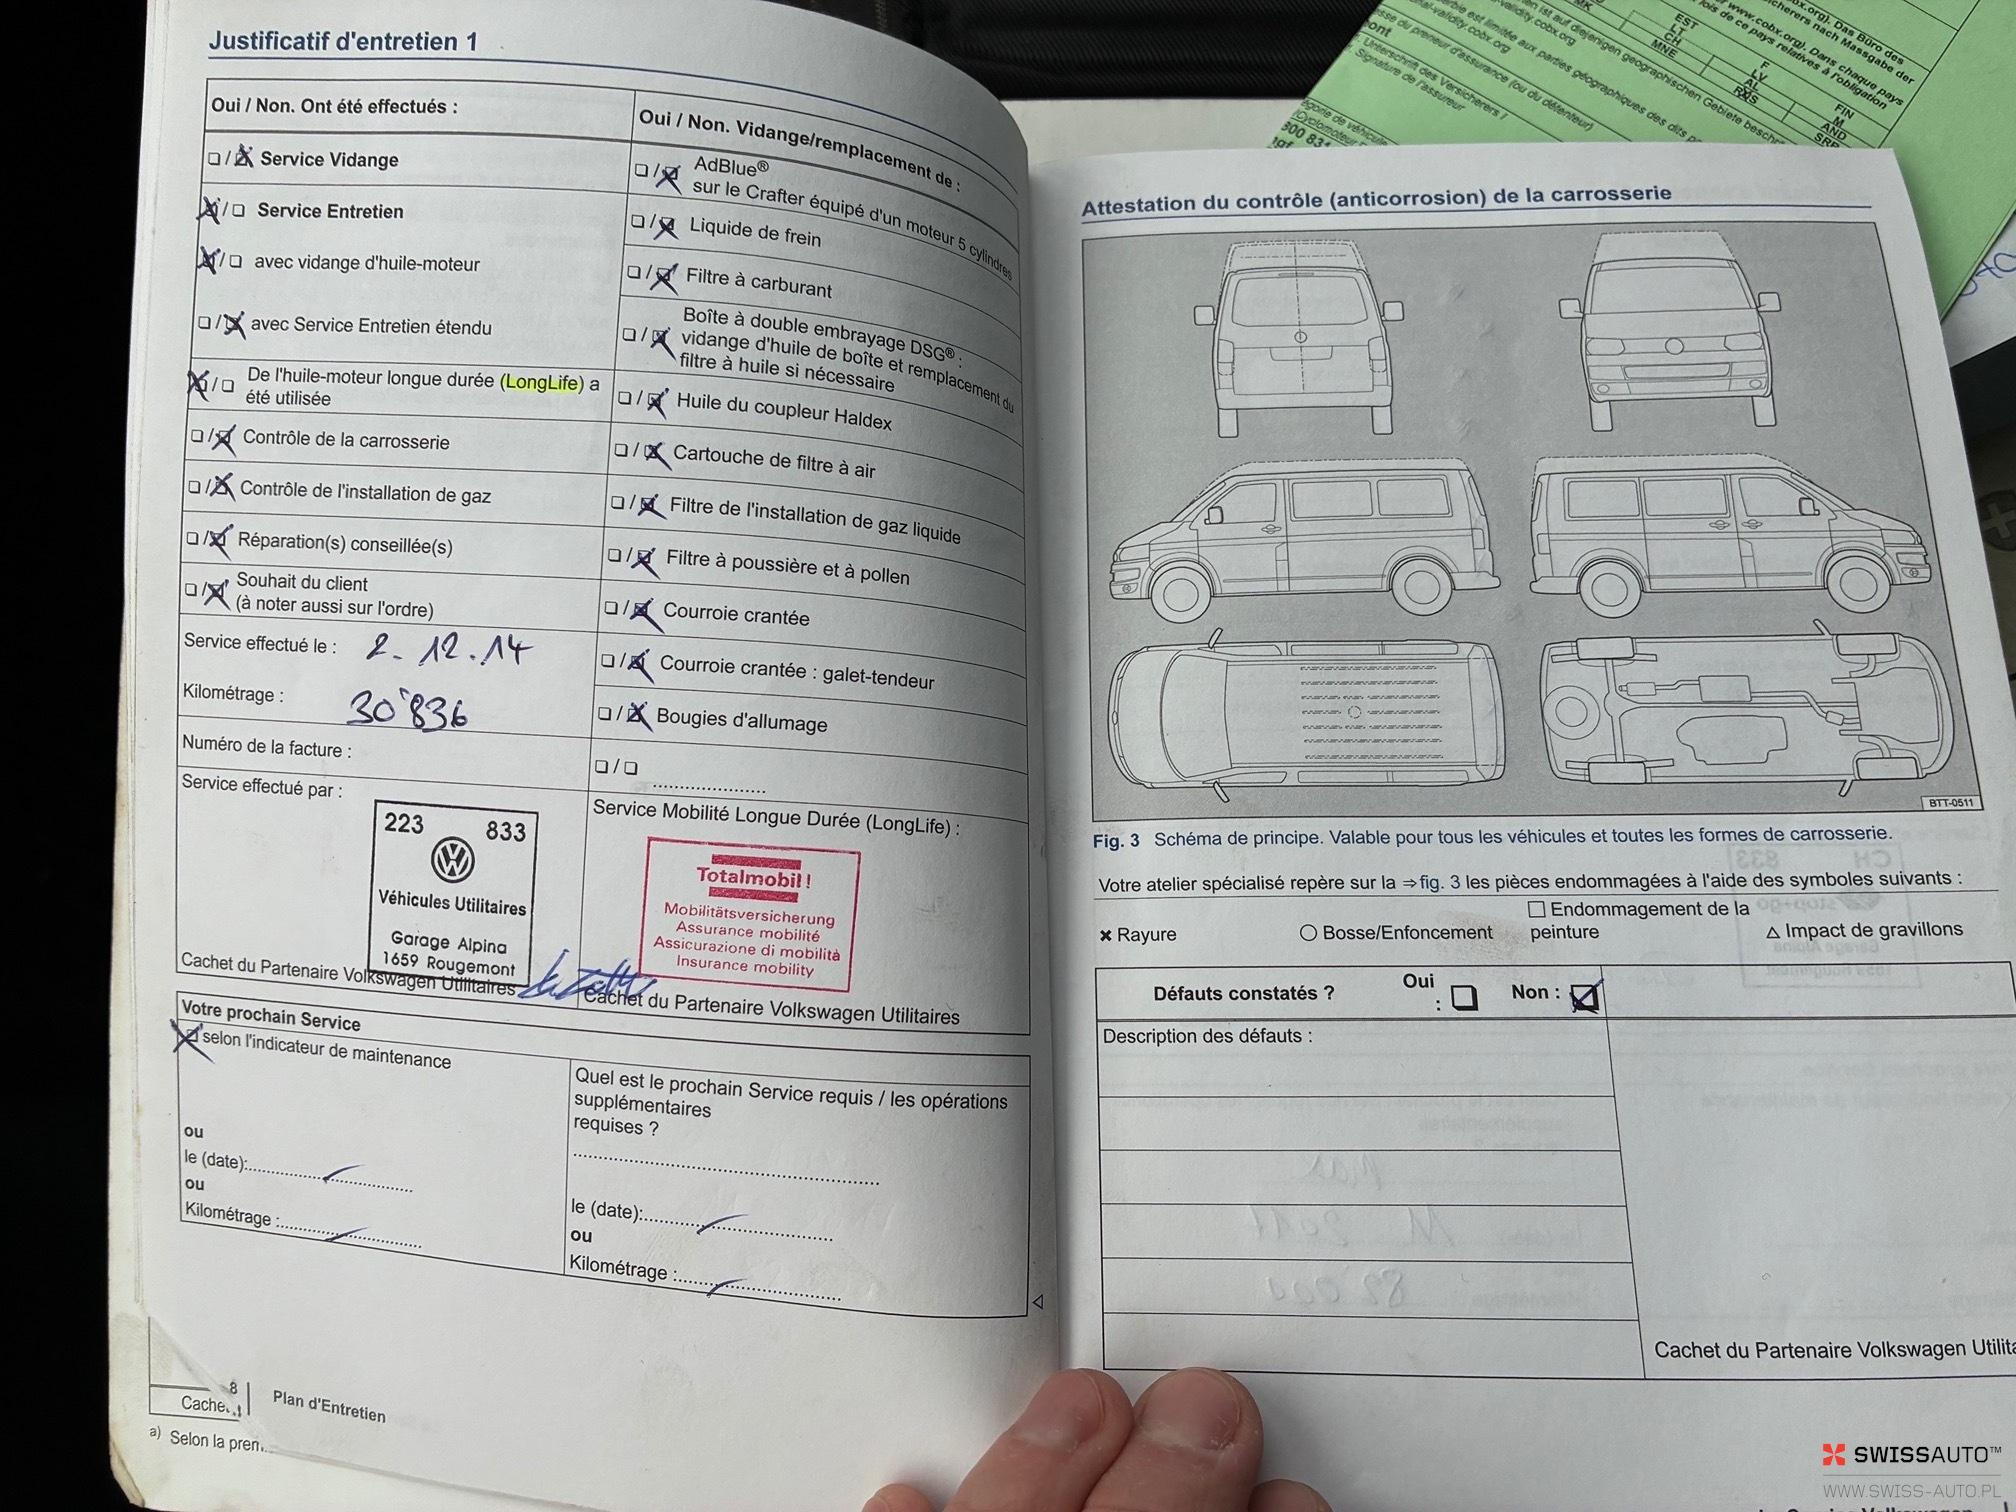 Justificatif d'entretien 1
Oui / Non. Ont été effectués :
❏ / ❏ Service Vidange
❏ / ❏ Service Entretien
❏ / ❏ avec vidange d'huile-moteur
❏ / ❏ avec Service Entretien étendu
❏ / ❏ De l'huile-moteur longue durée (LongLife) a
été utilisée
❏ / ❏ Contrôle de la carrosserie
❏ / ❏ Contrôle de l'installation de gaz
❏ / ❏ Réparation(s) conseillée(s)
❏ / ❏ Souhait du client
(à noter aussi sur l'ordre)
Service effectué le : 2.12.14
Kilométrage : 30'836
Numéro de la facture :
Service effectué par :
223 833
Véhicules Utilitaires
Garage Alpina
1659 Rougemont
Cachet du Partenaire Volkswagen Utilitaires
Oui / Non. Vidange/remplacement de :
❏ / ❏ AdBlue®
sur le Crafter équipé d'un moteur 5 cylindres
❏ / ❏ Liquide de frein
❏ / ❏ Filtre à carburant
❏ / ❏ Boîte à double embrayage DSG® :
vidange d'huile de boîte et remplacement du
filtre à huile si nécessaire
❏ / ❏ Huile du coupleur Haldex
❏ / ❏ Cartouche de filtre à air
❏ / ❏ Filtre de l'installation de gaz liquide
❏ / ❏ Filtre à poussière et à pollen
❏ / ❏ Courroie crantée
❏ / ❏ Courroie crantée : galet-tendeur
❏ / ❏ Bougies d'allumage
❏ / ❏ ......................
Service Mobilité Longue Durée (LongLife) :
Totalmobil!
Mobilitätsversicherung
Assurance mobilité
Assicurazione di mobilità
Insurance mobility
Cachet du Partenaire Volkswagen Utilitaires
Votre prochain Service
selon l'indicateur de maintenance
ou
le (date):
ou
Kilométrage :
Quel est le prochain Service requis / les opérations
supplémentaires
requises ?
le (date):
ou
Kilométrage :
8 Plan d'Entretien
a) Selon la prem
Attestation du contrôle (anticorrosion) de la carrosserie
BTT-0511
Fig. 3 Schéma de principe. Valable pour tous les véhicules et toutes les formes de carrosserie.
Votre atelier spécialisé repère sur la ⇒ fig. 3 les pièces endommagées à l'aide des symboles suivants :
✖ Rayure
○ Bosse/Enfoncement
☐ Endommagement de la
peinture
△ Impact de gravillons
Défauts constatés ? Oui : ☐ Non : ☐
Description des défauts :
Cachet du Partenaire Volkswagen
EST
LT
CH
MNE
F
LV
AL
RKS
FIN
M
AND
SRB
SWISSAUTO™
WWW.SWISS-AUTO.PL